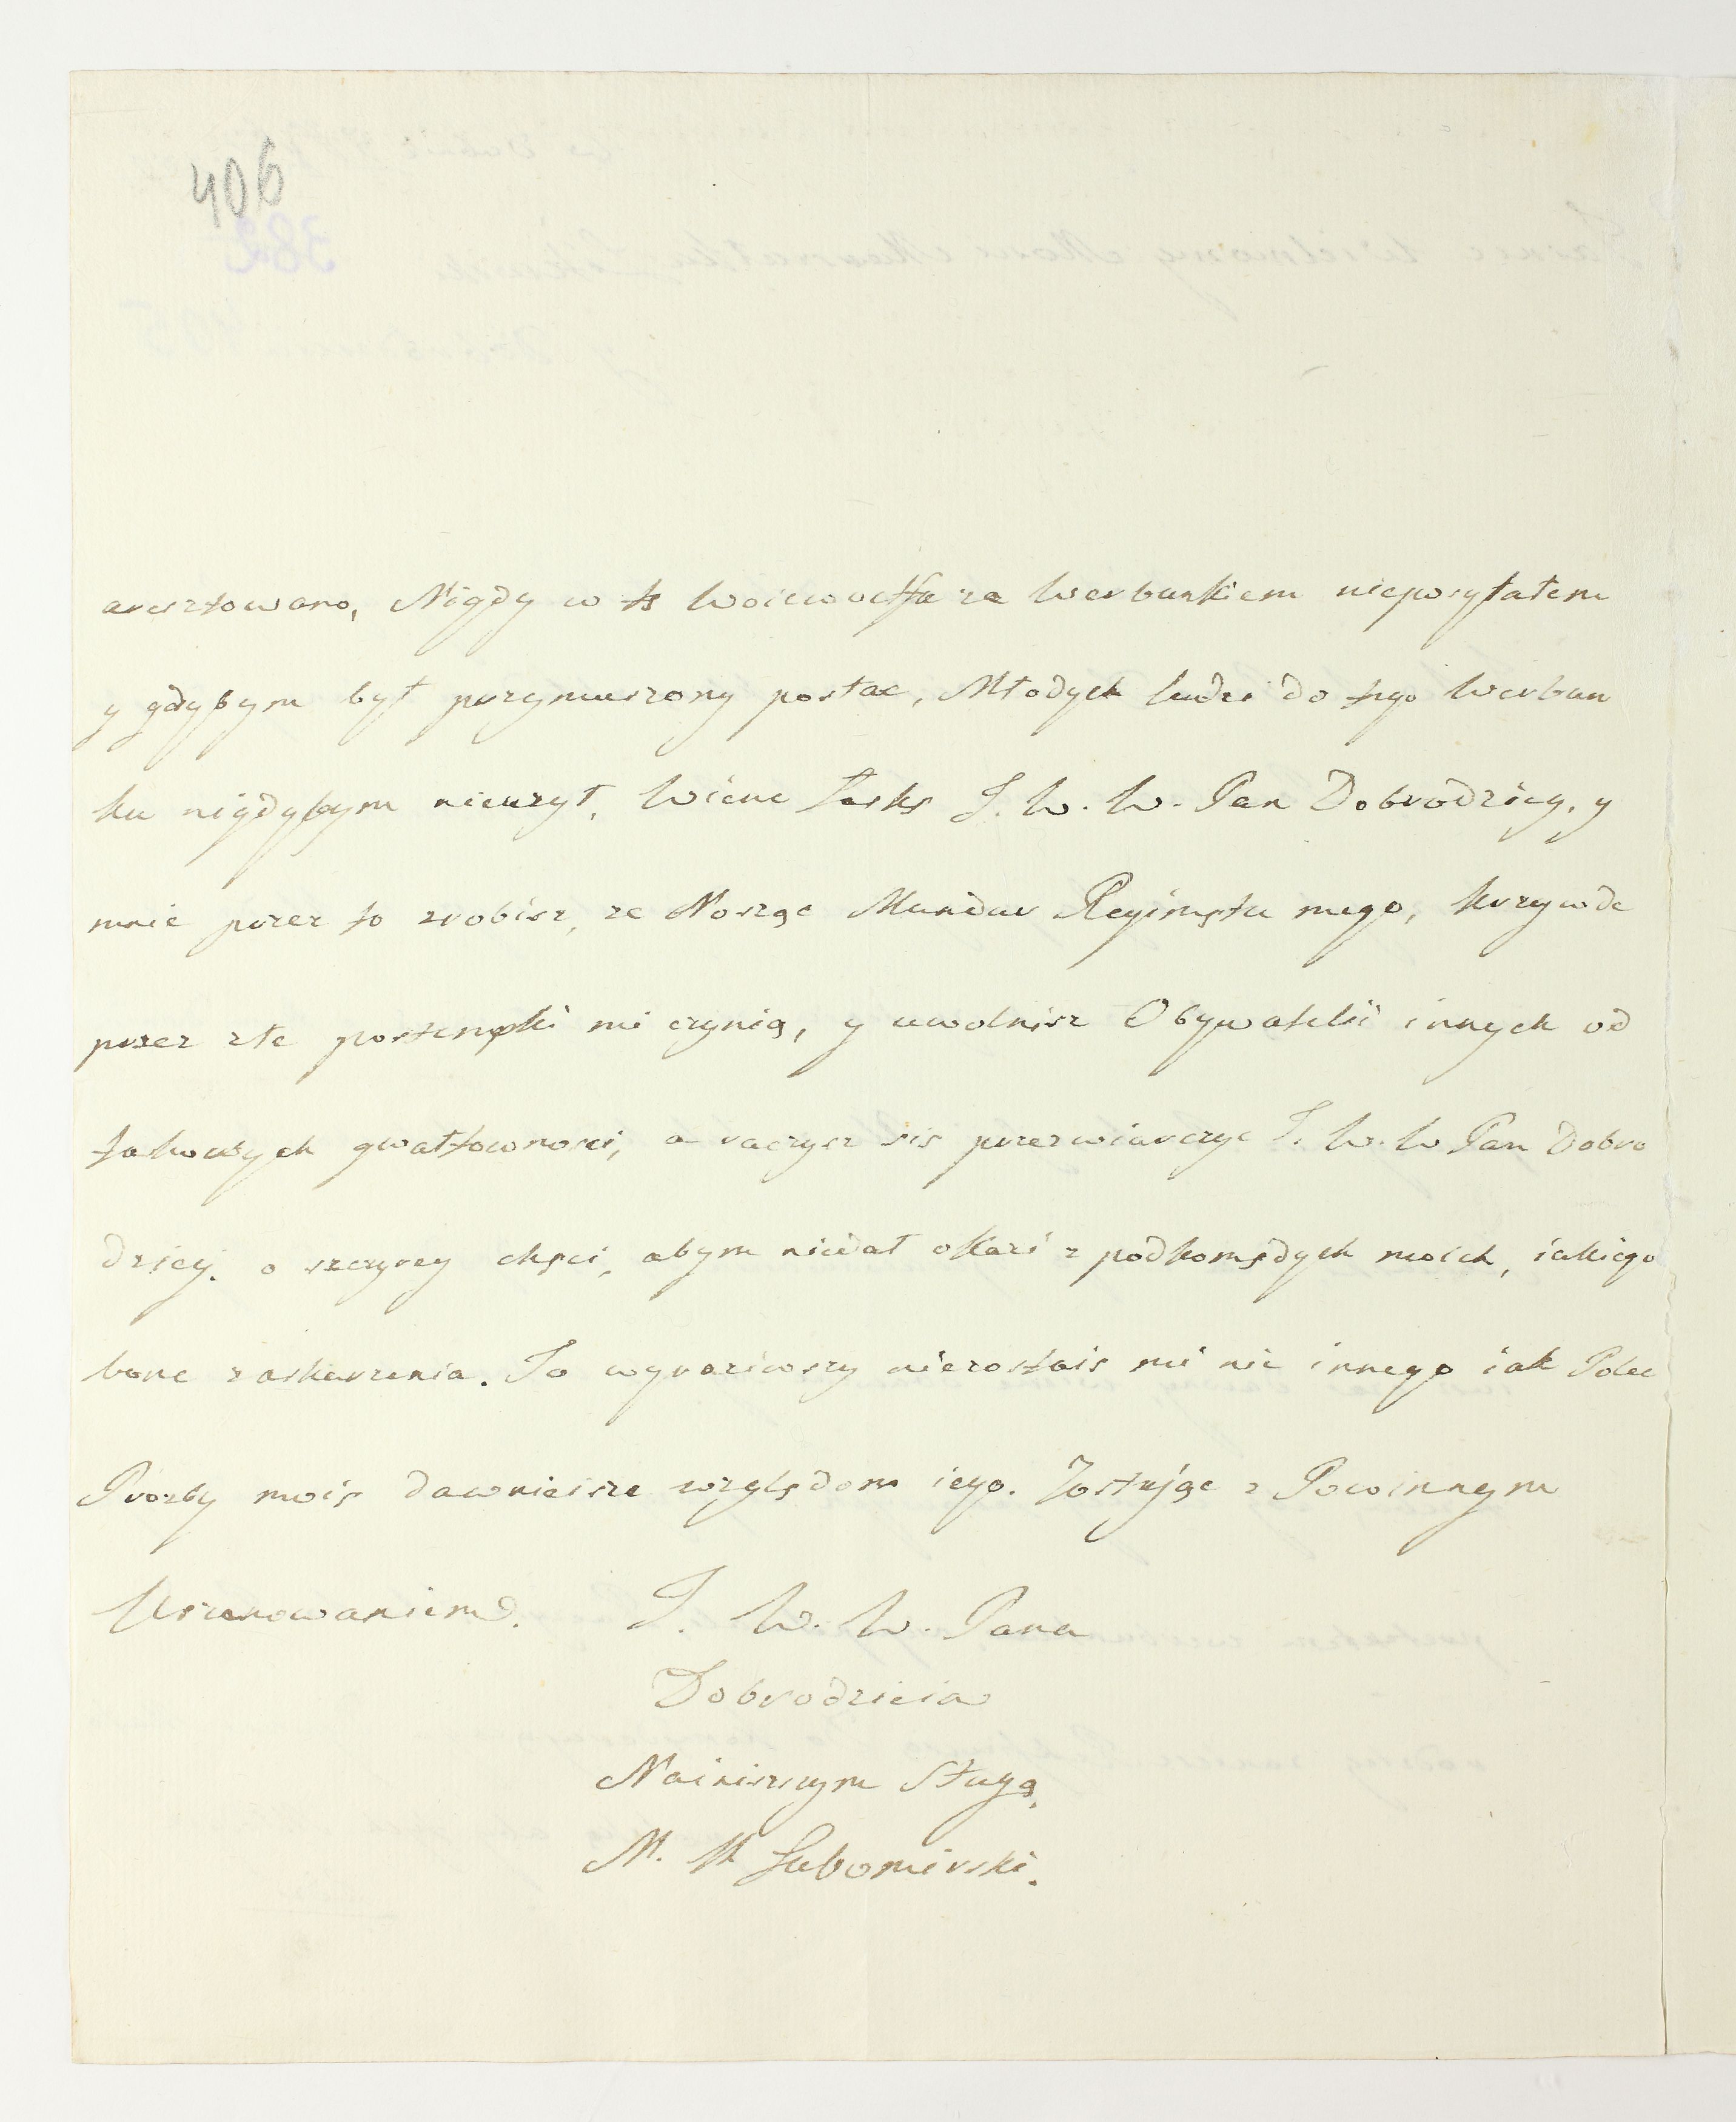 406
aresztowano, Nigdy w te Woiewodstwa za Werbunkiem nieposyłałem
y gdybym był przymuszony posłać, Młodych ludzi do tego Werbun
ku nigdybym nieużył, Wienc łaske J. W. W. Pan Dobrodziey, y
mnie przez to zrobisz, że Nosząc Mundur Regimętu mego, krzywde
przez złe postempki mi czynią, y uwolnisz Obywatelii innych od
takowych gwałtowności, a raczysz sie przezwiarczyc J. W. W Pan Dobro
dziey. o szczyrey chęci, abym niedał okazi z podkomędych moich, iakiego
bonc zaskarzenia. To wyraziwszy niezostaie mi nic innego iak Polec
Prozby moie dawnieisze względom iego. Zostając z Powinnym
Uszanowaniem.
J. W. W. Pana
Dobrodzieia
Nainiszszym Sługą.
M. Lubomirski.